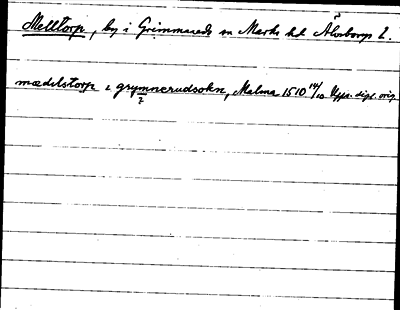 Melltorp, by i Grimmareds sn Marks hd Älvsborgs l.
mædelstorp i grymnerudsokn, Malma 1510 14/10 Upps. dipl. orig
?